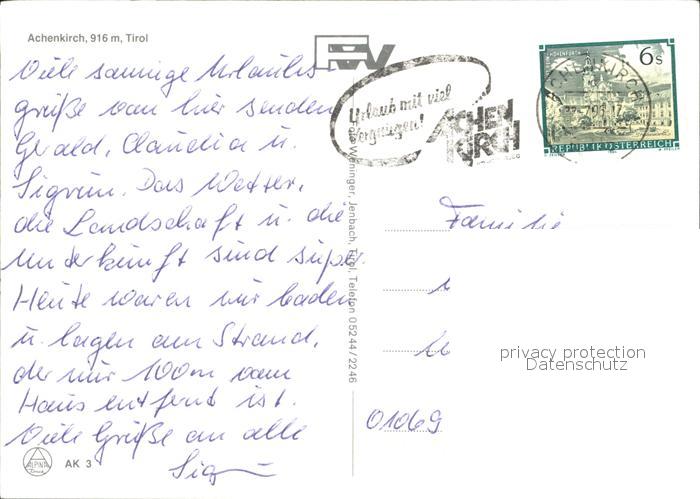 Achenkirch, 916 m, Tirol
Viele sonnige Urlaubs-
grüße von hier senden
Gerald, Claudia u.
Sigrun. Das Wetter,
die Landschaft u. die
Unterkunft sind super.
Heute waren wir baden
u. lagen am Strand,
der nur 100m vom
Haus entfernt ist.
Viele Grüße an alle
ALPINA
AK 3
Weninger, Jenbach, Tirol, Telefon 05244/2246
Urlaub mit viel
Vergnügen!
ACHEN
KIRCH
6 S
REPUBLIK ÖSTERREICH
ACHENKIRCH
Familie
01069
privacy protection
Datenschutz